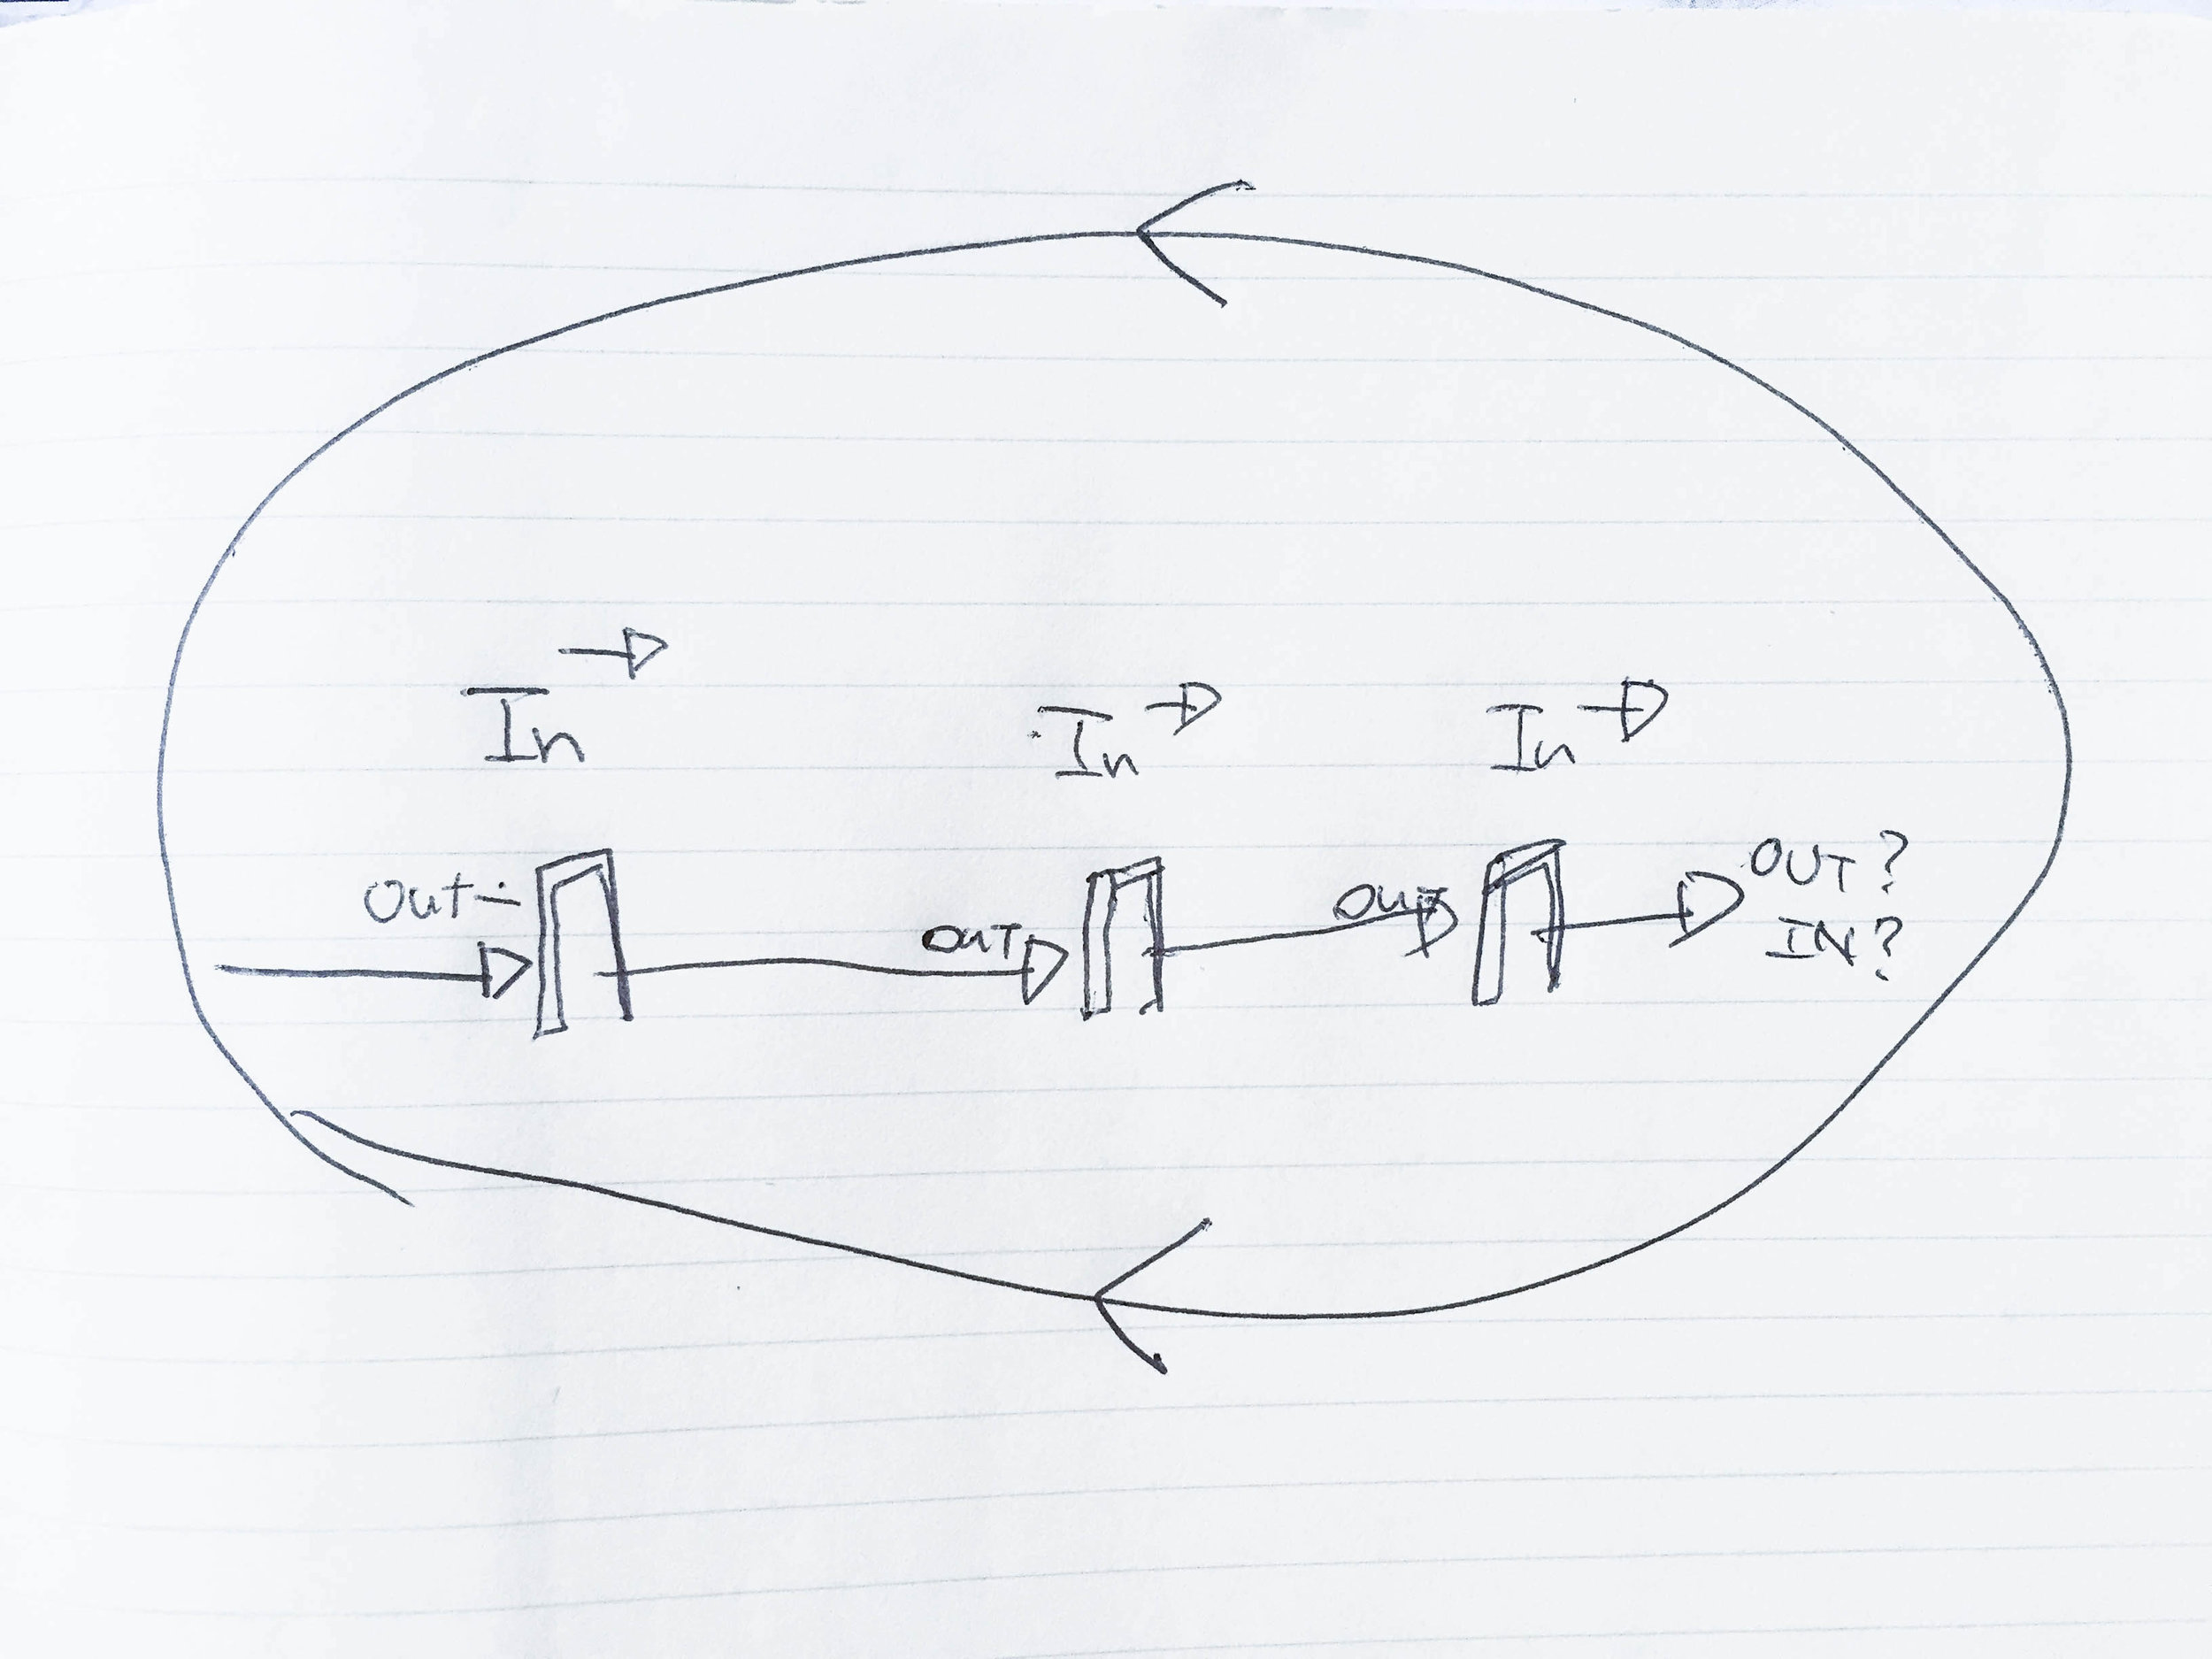 In
In
In
Out
OUT
OUT
OUT?
IN?